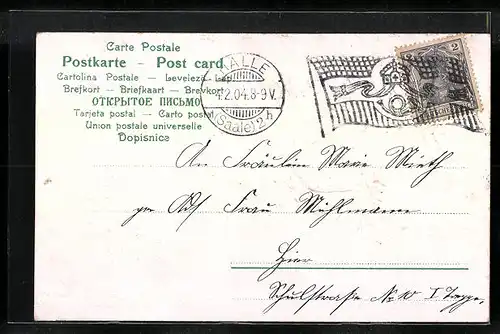 Carte Postale
Postkarte – Post card
Cartolina Postale — Levelező-Lap
Brefkort — Briefkaart — Brevkort
ОТКРЫТОЕ ПИСЬМО
Tarjeta postal — Carto postal
Union postale universelle
Dopisnice
HALLE
4.2.04.8-9V.
(Saale) 2 h
2
An Fräulein Marie Mieth
Frau Mühlmann
Hier
Schulstraße No 10 I Treppe.